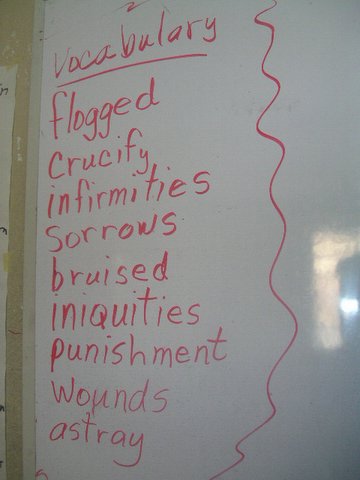 vocabulary
flogged
crucify
infirmities
sorrows
bruised
iniquities
punishment
wounds
astray